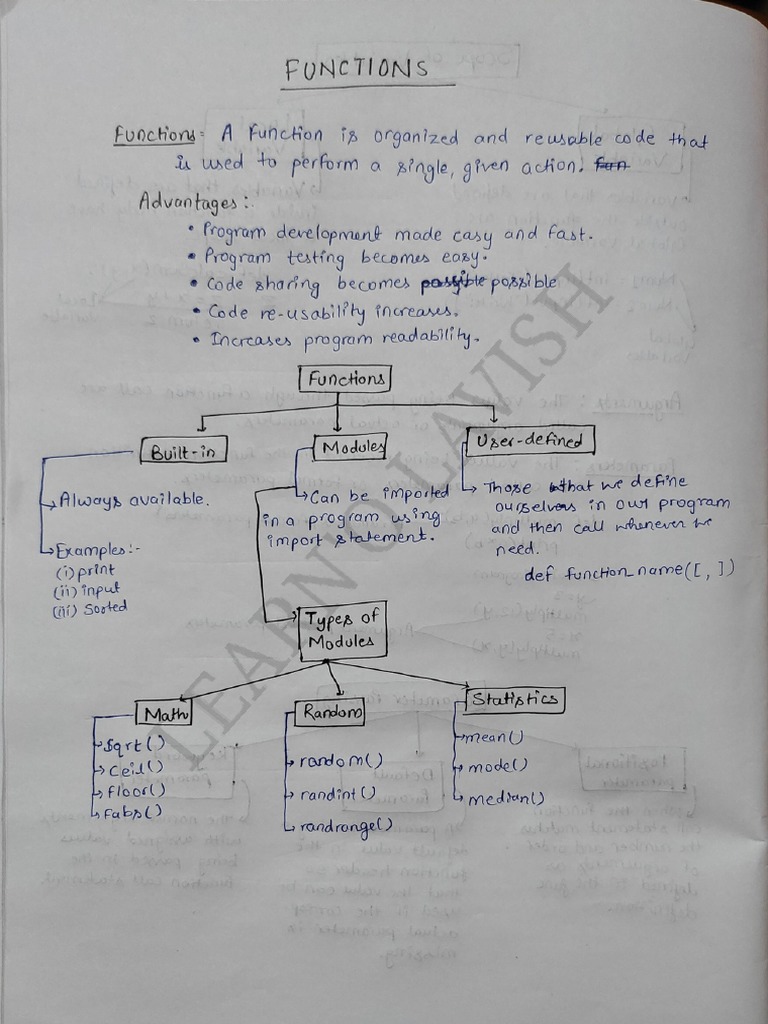 FUNCTIONS
Functions:- A Function is organized and reusable code that
is used to perform a single, given action.
Advantages:-
• Program development made easy and fast.
• Program testing becomes easy.
• Code sharing becomes possible possible
• Code re-usability increases.
• Increases program readability.
Functions
Built-in
Modules
User-defined
Always available.
Examples:-
(i) print
(ii) input
(iii) Sorted
Can be imported
in a program using
import statement.
Those that we define
ourselves in our program
and then call whenever we
need.
def function_name([ , ])
Types of
Modules
Math
Random
Statistics
Sqrt()
Ceil()
Floor()
Fabs()
random()
randint()
randrange()
mean()
mode()
median()
LEARN'O'LAVISH